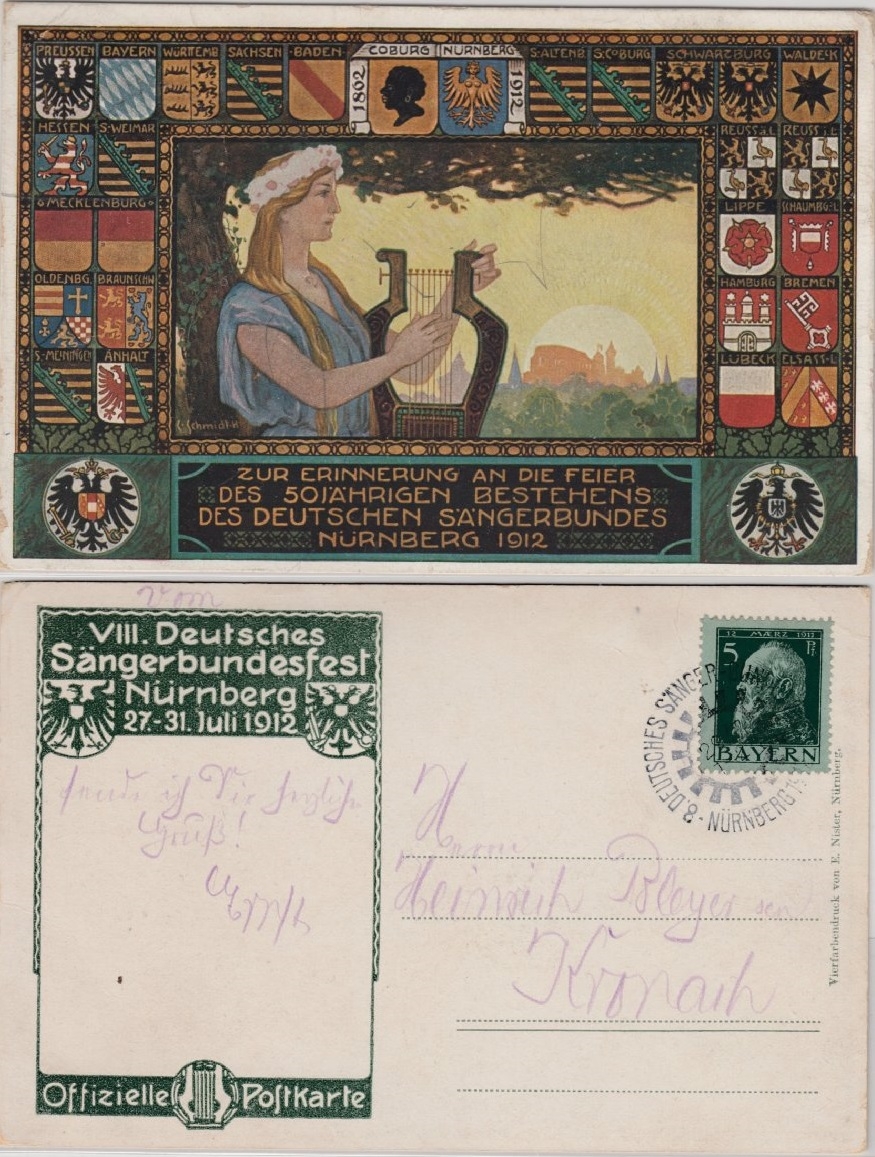 PREUSSEN BAYERN WÜRTTEMB SACHSEN BADEN COBURG NÜRNBERG S-ALTENB. S:COBURG SCHWARZBURG WALDECK
1862 1912
HESSEN S-WEIMAR REUSS ä.L REUSS j.L
MECKLENBURG LIPPE SCHAUMBG-L
OLDENBG. BRAUNSCHW HAMBURG BREMEN
S-MEININGEN ANHALT LÜBECK ELSASS-L
C. Schmidt
ZUR ERINNERUNG AN DIE FEIER
DES 50JÄHRIGEN BESTEHENS
DES DEUTSCHEN SÄNGERBUNDES
NÜRNBERG 1912
vom
VIII. Deutsches
Sängerbundesfest
Nürnberg
27-31. Juli 1912
sende ich Dir herzliche
Gruß!
Ernst
Offizielle Postkarte
12 MÆRZ 1911
5 Pf
BAYERN
8. DEUTSCHES SÄNGER
NÜRNBERG 19
Herrn
Heinrich Bleyer sen
Kronach
Vierfarbendruck von E. Nister, Nürnberg.